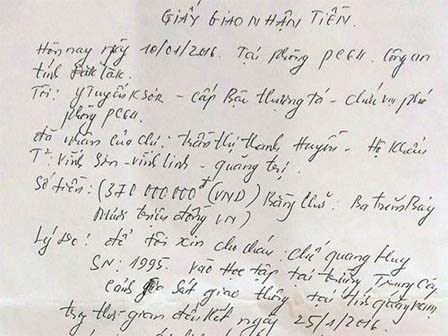 GIẤY GIAO NHẬN TIỀN.
Hôm nay ngày 10/01/2016. Tại phòng PC64. Công an
tỉnh Đăk Lăk.
Tôi: Y Tuyến KSOR - cấp Bậc thượng tá - chức vụ phó
phòng PC64.
đã nhận của chị: Trần Thị Thanh Huyền - Hộ Khẩu
T²: Vĩnh Sơn - Vĩnh Linh - quảng trị.
Số tiền: (370 000 000đ (VND) Bằng chữ: Ba trăm Bảy
Mươi triệu đồng VN)
Lý do: để tôi xin cho cháu: chế quang Huy
SN: 1995. vào học tập tại trường Trung Cấp
Cảnh sát giao thông tại tỉnh quảng nam,
trong thời gian đến hết ngày 25/1/2016.